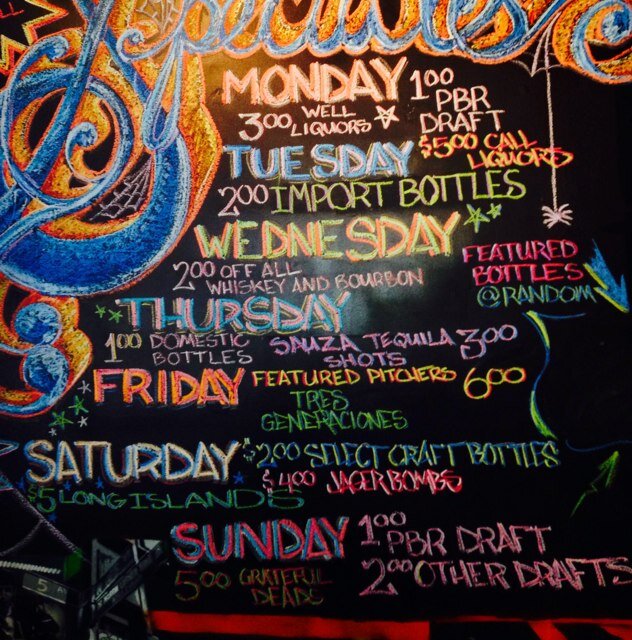 Specials
MONDAY
1.00 PBR DRAFT
3.00 WELL LIQUORS
TUESDAY
$5.00 CALL LIQUORS
2.00 IMPORT BOTTLES
WEDNESDAY
2.00 OFF ALL WHISKEY AND BOURBON
FEATURED BOTTLES @RANDOM
THURSDAY
1.00 DOMESTIC BOTTLES
SAUZA TEQUILA SHOTS 3.00
FRIDAY
FEATURED PITCHERS 6.00
TRES GENERACIONES
SATURDAY
$2.00 SELECT CRAFT BOTTLES
$4.00 JAGER BOMBS
$5 LONG ISLAND'S
SUNDAY
1.00 PBR DRAFT
2.00 OTHER DRAFTS
5.00 GRATEFUL DEADS
5